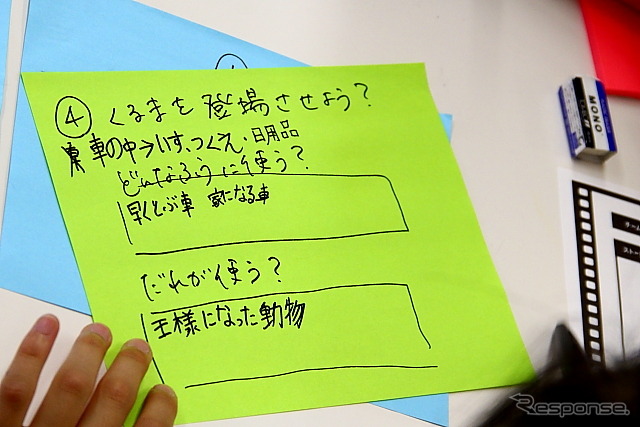 ④ くるまを登場させよう？
車の中→いす、つくえ・日用品
どんなふうに使う？
早くとぶ車 家になる車
だれが使う？
王様になった動物
MONO
チーム
ストー
Response.